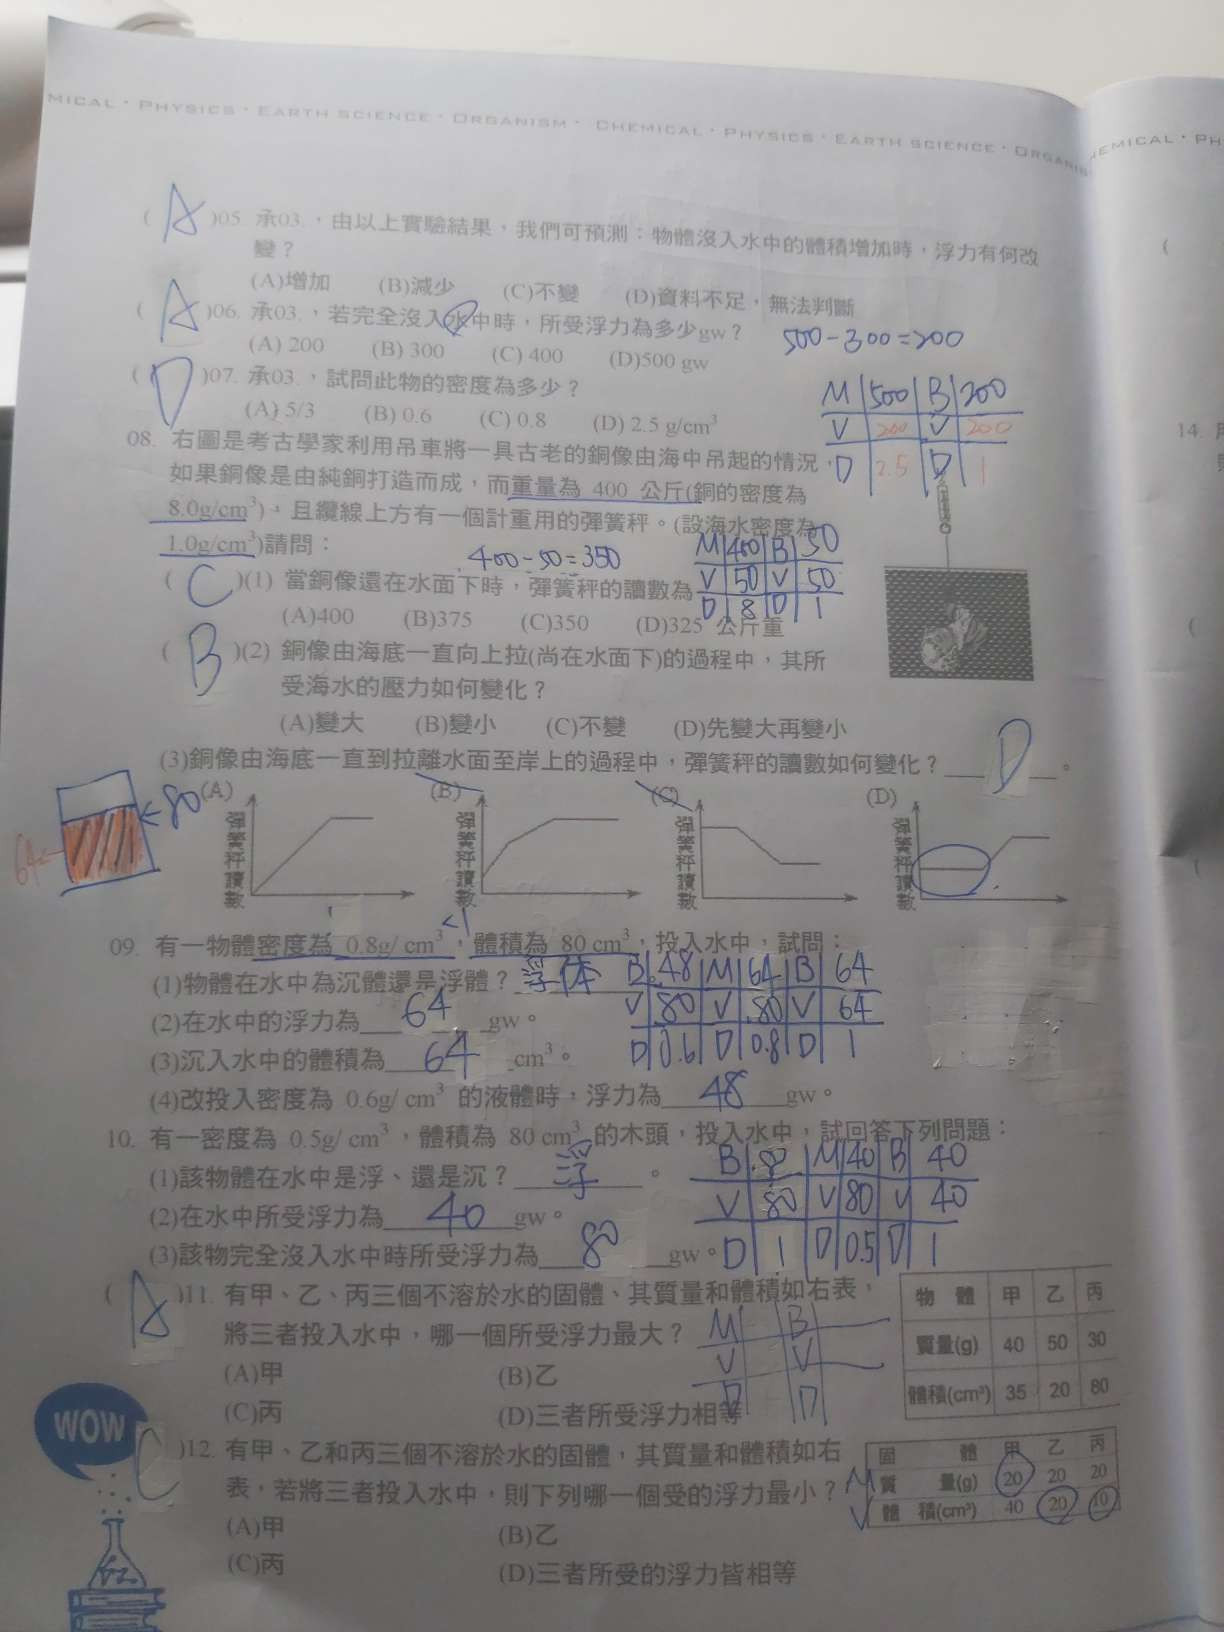 MICAL・PHYSICS・EARTH SCIENCE・ORGANISM・ CHEMICAL・PHYSICS・EARTH SCIENCE・ORGANIS
HEMICAL・PH
( A )05. 承03.，由以上實驗結果，我們可預測：物體沒入水中的體積增加時，浮力有何改
變？
(A)增加 (B)減少 (C)不變 (D)資料不足，無法判斷
( A )06. 承03.，若完全沒入水中時，所受浮力為多少gw？ 500-300=200
(A) 200 (B) 300 (C) 400 (D)500 gw
( D )07. 承03.，試問此物的密度為多少？
(A) 5/3 (B) 0.6 (C) 0.8 (D) 2.5 g/cm³
M 500 B 200
V 200 V 200
D 2.5 D 1
08. 右圖是考古學家利用吊車將一具古老的銅像由海中吊起的情況，
如果銅像是由純銅打造而成，而重量為 400 公斤(銅的密度為
8.0g/cm³)，且纜線上方有一個計重用的彈簧秤。(設海水密度為
1.0g/cm³)請問：
400-50=350
M 400 B 50
V 50 V 50
D 8 D 1
( C )(1) 當銅像還在水面下時，彈簧秤的讀數為
(A)400 (B)375 (C)350 (D)325 公斤重
( B )(2) 銅像由海底一直向上拉(尚在水面下)的過程中，其所
受海水的壓力如何變化？
(A)變大 (B)變小 (C)不變 (D)先變大再變小
(3)銅像由海底一直到拉離水面至岸上的過程中，彈簧秤的讀數如何變化？ D 。
(A) (B) (C) (D)
彈簧秤讀數
彈簧秤讀數
彈簧秤讀數
彈簧秤讀數
80
64
<1
09. 有一物體密度為 0.8g/ cm³，體積為 80 cm³，投入水中，試問：
(1)物體在水中為沉體還是浮體？ 浮体 。
(2)在水中的浮力為 64 gw。
(3)沉入水中的體積為 64 cm³。
(4)改投入密度為 0.6g/ cm³ 的液體時，浮力為 48 gw。
B 48 M 64 B 64
V 80 V 80 V 64
D 0.6 D 0.8 D 1
10. 有一密度為 0.5g/ cm³，體積為 80 cm³ 的木頭，投入水中，試回答下列問題：
(1)該物體在水中是浮、還是沉？ 浮 。
(2)在水中所受浮力為 40 gw。
(3)該物完全沒入水中時所受浮力為 80 gw。
B M 40 B 40
V 80 V 80 V 40
D 1 D 0.5 D 1
( A )11. 有甲、乙、丙三個不溶於水的固體、其質量和體積如右表，
將三者投入水中，哪一個所受浮力最大？
(A)甲 (B)乙
(C)丙 (D)三者所受浮力相等
M B
V V
D D
物 體 甲 乙 丙
質量(g) 40 50 30
體積(cm³) 35 20 80
WOW
C )12. 有甲、乙和丙三個不溶於水的固體，其質量和體積如右
表，若將三者投入水中，則下列哪一個受的浮力最小？
(A)甲 (B)乙
(C)丙 (D)三者所受的浮力皆相等
固 體 甲 乙 丙
M 質 量(g) 20 20 20
V 體 積(cm³) 40 20 10
14.